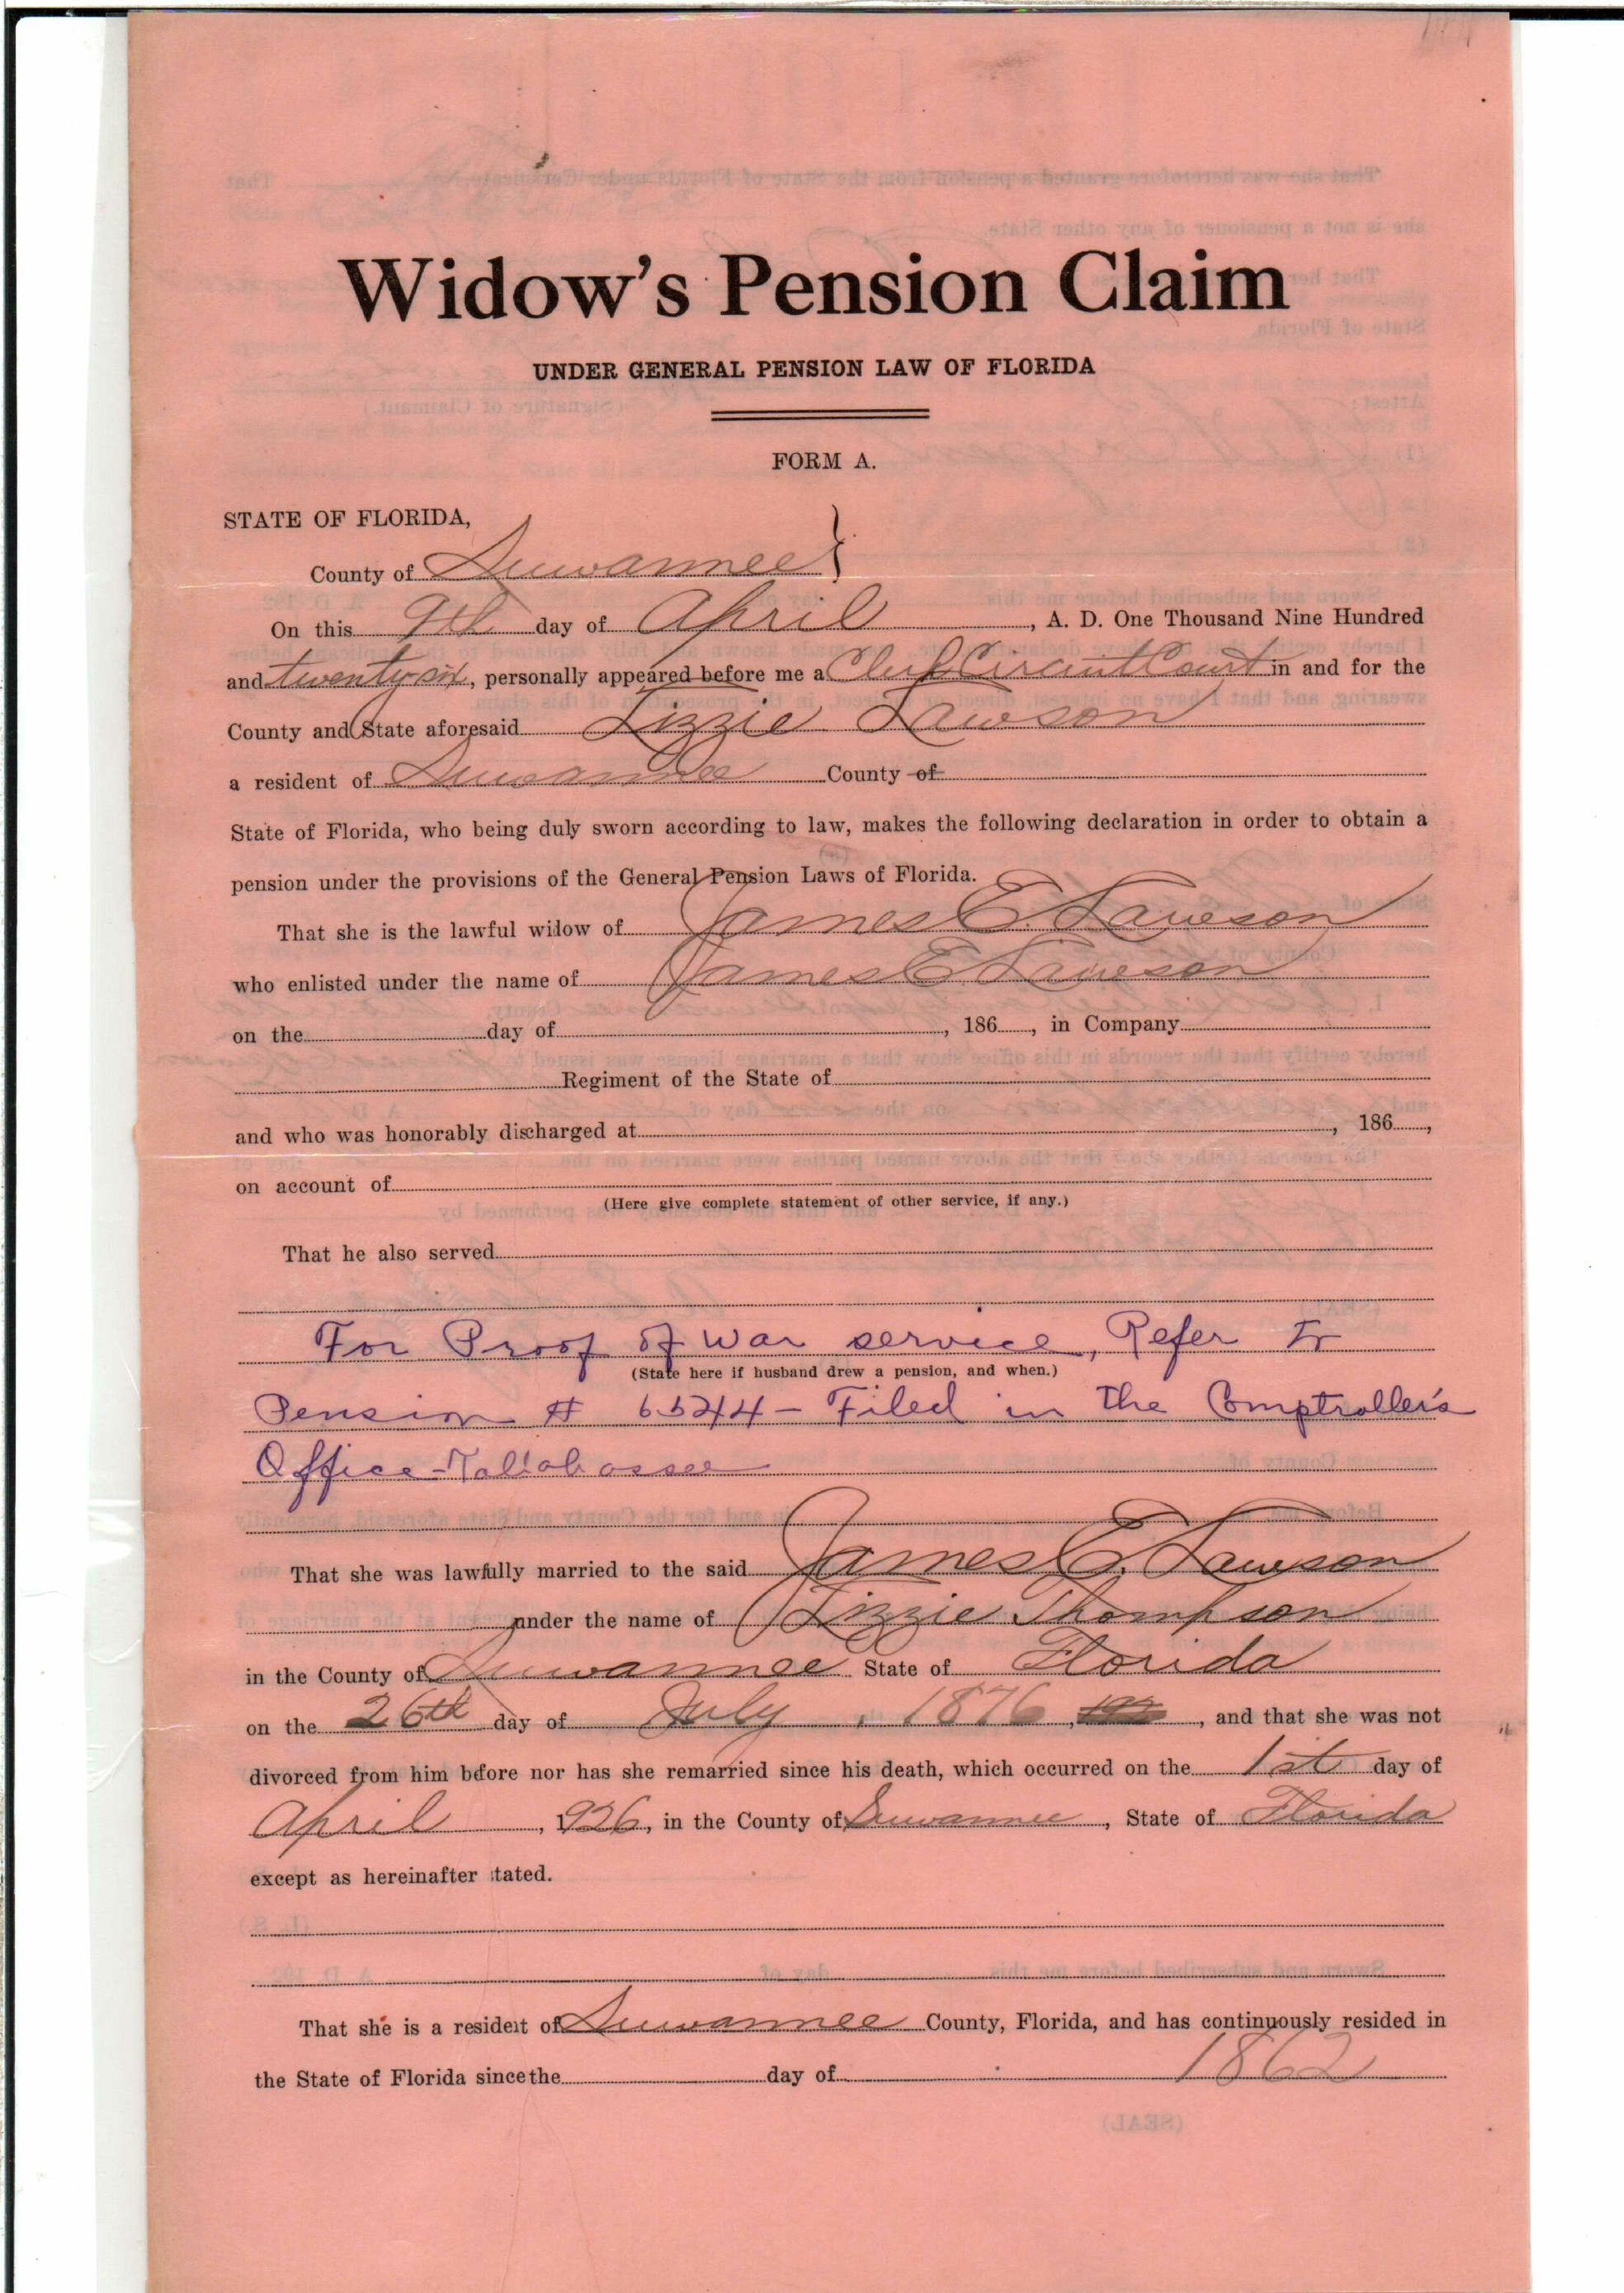 Widow's Pension Claim
UNDER GENERAL PENSION LAW OF FLORIDA
FORM A.
STATE OF FLORIDA,
County of Suwannee }
On this 9th day of April, A. D. One Thousand Nine Hundred
and twenty six, personally appeared before me a Clerk Circuit Court in and for the
County and State aforesaid Lizzie Lawson
a resident of Suwannee County of
State of Florida, who being duly sworn according to law, makes the following declaration in order to obtain a
pension under the provisions of the General Pension Laws of Florida.
That she is the lawful widow of James E. Lawson
who enlisted under the name of James E Lawson
on the day of , 186 , in Company
Regiment of the State of
and who was honorably discharged at , 186 ,
on account of
(Here give complete statement of other service, if any.)
That he also served
For Proof of war service, Refer to
(State here if husband drew a pension, and when.)
Pension # 6544 - Filed in the Comptroller's
Office - Tallahassee
That she was lawfully married to the said James E. Lawson
under the name of Lizzie Thompson
in the County of Suwannee State of Florida
on the 26th day of July, 1876, , and that she was not
divorced from him before nor has she remarried since his death, which occurred on the 1st day of
April, 1926, in the County of Suwannee, State of Florida
except as hereinafter stated.
That she is a resident of Suwannee County, Florida, and has continuously resided in
the State of Florida since the day of 1862